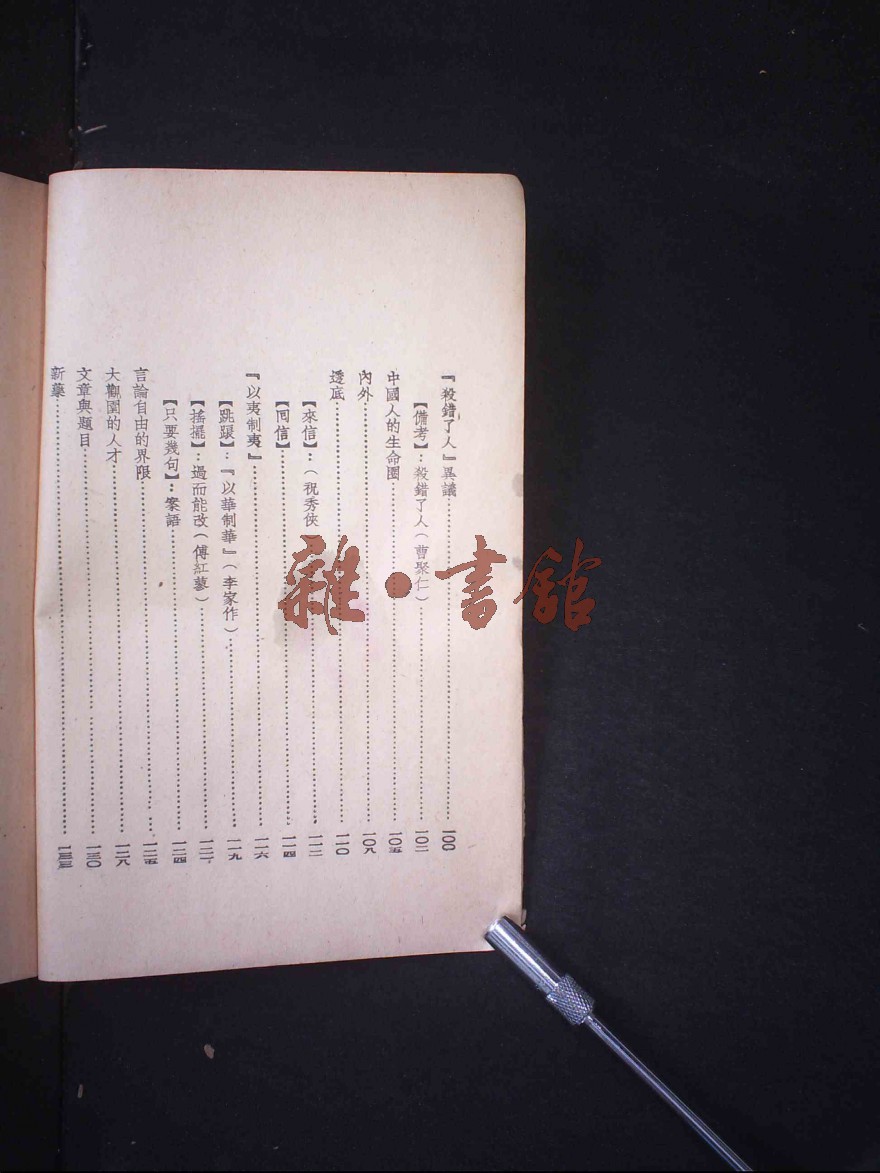 『殺錯了人』異議……一〇〇
【備考】：殺錯了人（曹聚仁）……一〇二
中國人的生命圈……一〇五
內外……一〇八
透底……一一〇
【來信】：（祝秀俠……一一二
【回信】……一一四
『以夷制夷』……一一六
【跳踉】：『以華制華』（李家作）……一一九
【搖擺】：過而能改（傅紅蓼）……一二一
【只要幾句】：案語……一二四
言論自由的界限……一二五
大觀園的人才……一二八
文章與題目……一三〇
新藥……一三三
雜·書館